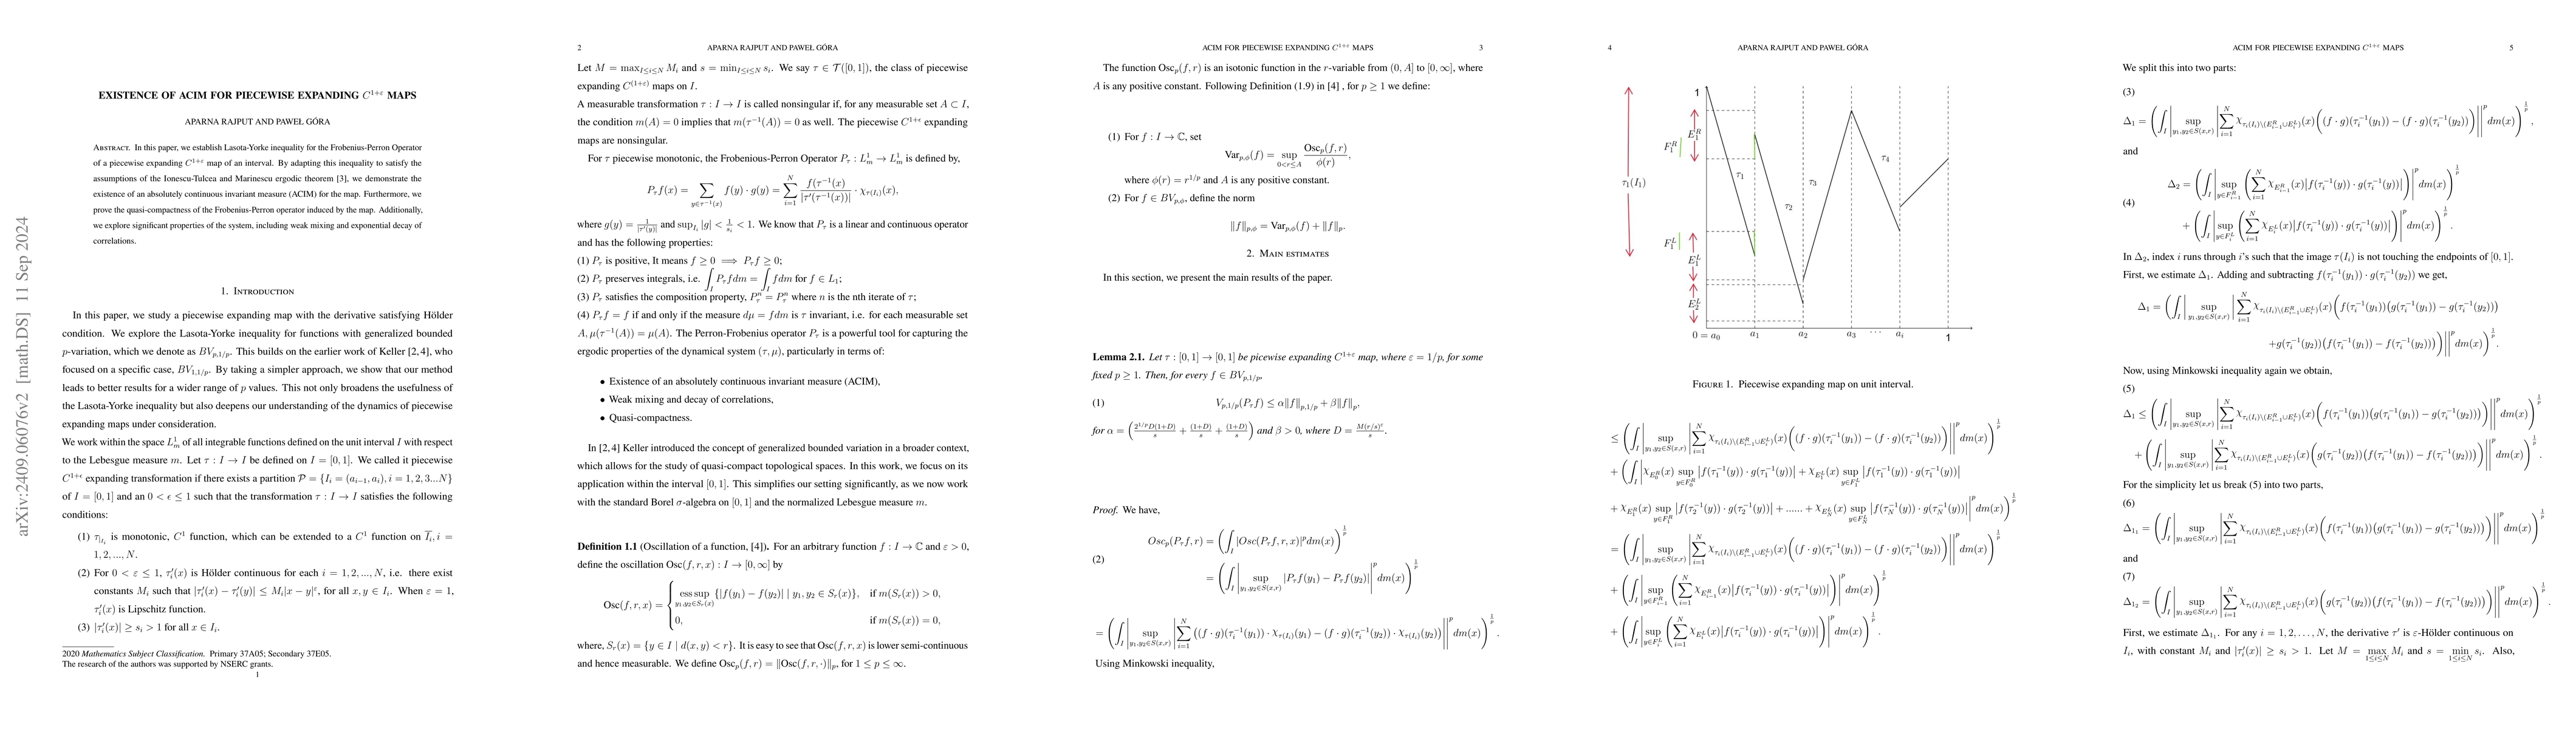 arXiv:2409.06076v2 [math.DS] 11 Sep 2024
EXISTENCE OF ACIM FOR PIECEWISE EXPANDING $C^{1+\varepsilon}$ MAPS
APARNA RAJPUT AND PAWEŁ GÓRA
ABSTRACT. In this paper, we establish Lasota-Yorke inequality for the Frobenius-Perron Operator
of a piecewise expanding $C^{1+\varepsilon}$ map of an interval. By adapting this inequality to satisfy the
assumptions of the Ionescu-Tulcea and Marinescu ergodic theorem [3], we demonstrate the
existence of an absolutely continuous invariant measure (ACIM) for the map. Furthermore, we
prove the quasi-compactness of the Frobenius-Perron operator induced by the map. Additionally,
we explore significant properties of the system, including weak mixing and exponential decay of
correlations.
1. INTRODUCTION
In this paper, we study a piecewise expanding map with the derivative satisfying Hölder
condition. We explore the Lasota-Yorke inequality for functions with generalized bounded
$p$-variation, which we denote as $BV_{p,1/p}$. This builds on the earlier work of Keller [2,4], who
focused on a specific case, $BV_{1,1/p}$. By taking a simpler approach, we show that our method
leads to better results for a wider range of $p$ values. This not only broadens the usefulness of
the Lasota-Yorke inequality but also deepens our understanding of the dynamics of piecewise
expanding maps under consideration.
We work within the space $L^1_m$ of all integrable functions defined on the unit interval $I$ with respect
to the Lebesgue measure $m$. Let $\tau : I \to I$ be defined on $I = [0, 1]$. We called it piecewise
$C^{1+\epsilon}$ expanding transformation if there exists a partition $\mathcal{P} = \{I_i = (a_{i-1}, a_i), i = 1, 2, 3...N\}$
of $I = [0, 1]$ and an $0 < \epsilon \leq 1$ such that the transformation $\tau : I \to I$ satisfies the following
conditions:
(1) $\tau_{|I_i}$ is monotonic, $C^1$ function, which can be extended to a $C^1$ function on $\overline{I}_i, i =$
$1, 2, ..., N$.
(2) For $0 < \varepsilon \leq 1$, $\tau_i'(x)$ is Hölder continuous for each $i = 1, 2, ..., N$, i.e. there exist
constants $M_i$ such that $|\tau_i'(x) - \tau_i'(y)| \leq M_i|x - y|^\varepsilon$, for all $x, y \in I_i$. When $\varepsilon = 1$,
$\tau_i'(x)$ is Lipschitz function.
(3) $|\tau_i'(x)| \geq s_i > 1$ for all $x \in I_i$.
2020 Mathematics Subject Classification. Primary 37A05; Secondary 37E05.
The research of the authors was supported by NSERC grants.
1
2 APARNA RAJPUT AND PAWEŁ GÓRA
Let $M = \max_{I \leq i \leq N} M_i$ and $s = \min_{I \leq i \leq N} s_i$. We say $\tau \in \mathcal{T}([0, 1])$, the class of piecewise
expanding $C^{(1+\varepsilon)}$ maps on $I$.
A measurable transformation $\tau : I \to I$ is called nonsingular if, for any measurable set $A \subset I$,
the condition $m(A) = 0$ implies that $m(\tau^{-1}(A)) = 0$ as well. The piecewise $C^{1+\epsilon}$ expanding
maps are nonsingular.
For $\tau$ piecewise monotonic, the Frobenious-Perron Operator $P_\tau : L^1_m \to L^1_m$ is defined by,
$P_\tau f(x) = \sum_{y \in \tau^{-1}(x)} f(y) \cdot g(y) = \sum_{i=1}^{N} \frac{f(\tau^{-1}(x)}{|\tau'(\tau^{-1}(x))|} \cdot \chi_{\tau(I_i)}(x),$
where $g(y) = \frac{1}{|\tau'(y)|}$ and $\sup_{I_i} |g| < \frac{1}{s_i} < 1$. We know that $P_\tau$ is a linear and continuous operator
and has the following properties:
(1) $P_\tau$ is positive, It means $f \geq 0 \implies P_\tau f \geq 0$;
(2) $P_\tau$ preserves integrals, i.e. $\int_I P_\tau f dm = \int_I f dm$ for $f \in L_1$;
(3) $P_\tau$ satisfies the composition property, $P_\tau^n = P_\tau^n$ where $n$ is the nth iterate of $\tau$;
(4) $P_\tau f = f$ if and only if the measure $d\mu = f dm$ is $\tau$ invariant, i.e. for each measurable set
$A, \mu(\tau^{-1}(A)) = \mu(A)$. The Perron-Frobenius operator $P_\tau$ is a powerful tool for capturing the
ergodic properties of the dynamical system $(\tau, \mu)$, particularly in terms of:
• Existence of an absolutely continuous invariant measure (ACIM),
• Weak mixing and decay of correlations,
• Quasi-compactness.
In [2,4] Keller introduced the concept of generalized bounded variation in a broader context,
which allows for the study of quasi-compact topological spaces. In this work, we focus on its
application within the interval $[0, 1]$. This simplifies our setting significantly, as we now work
with the standard Borel $\sigma$-algebra on $[0, 1]$ and the normalized Lebesgue measure $m$.
Definition 1.1 (Oscillation of a function, [4]). For an arbitrary function $f : I \to \mathbb{C}$ and $\varepsilon > 0$,
define the oscillation $\text{Osc}(f, r, x) : I \to [0, \infty]$ by
$\text{Osc}(f, r, x) = \begin{cases} \text{ess sup}_{y_1,y_2 \in S_r(x)} \{|f(y_1) - f(y_2)| \mid y_1, y_2 \in S_r(x)\}, & \text{if } m(S_r(x)) > 0, \\ 0, & \text{if } m(S_r(x)) = 0, \end{cases}$
where, $S_r(x) = \{y \in I \mid d(x, y) < r\}$. It is easy to see that $\text{Osc}(f, r, x)$ is lower semi-continuous
and hence measurable. We define $\text{Osc}_p(f, r) = \|\text{Osc}(f, r, \cdot)\|_p$, for $1 \leq p \leq \infty$.
ACIM FOR PIECEWISE EXPANDING $C^{1+\varepsilon}$ MAPS 3
The function $\text{Osc}_p(f, r)$ is an isotonic function in the $r$-variable from $(0, A]$ to $[0, \infty]$, where
$A$ is any positive constant. Following Definition (1.9) in [4] , for $p \geq 1$ we define:
(1) For $f : I \to \mathbb{C}$, set
$\text{Var}_{p,\phi}(f) = \sup_{0<r\leq A} \frac{\text{Osc}_p(f, r)}{\phi(r)},$
where $\phi(r) = r^{1/p}$ and $A$ is any positive constant.
(2) For $f \in BV_{p,\phi}$, define the norm
$\|f\|_{p,\phi} = \text{Var}_{p,\phi}(f) + \|f\|_p.$
2. MAIN ESTIMATES
In this section, we present the main results of the paper.
Lemma 2.1. Let $\tau : [0, 1] \to [0, 1]$ be picewise expanding $C^{1+\varepsilon}$ map, where $\varepsilon = 1/p$, for some
fixed $p \geq 1$. Then, for every $f \in BV_{p,1/p}$,
(1) $V_{p,1/p}(P_\tau f) \leq \alpha\|f\|_{p,1/p} + \beta\|f\|_p,$
for $\alpha = \left(\frac{2^{1/p}D(1+D)}{s} + \frac{(1+D)}{s} + \frac{(1+D)}{s}\right)$ and $\beta > 0$, where $D = \frac{M(r/s)^\varepsilon}{s}$.
Proof. We have,
(2) $Osc_p(P_\tau f, r) = \left(\int_I |Osc(P_\tau f, r, x)|^p dm(x)\right)^{\frac{1}{p}}$
$= \left(\int_I \left|\sup_{y_1,y_2 \in S(x,r)} |P_\tau f(y_1) - P_\tau f(y_2)|\right|^p dm(x)\right)^{\frac{1}{p}}$
$= \left(\int_I \left|\sup_{y_1,y_2 \in S(x,r)} \left|\sum_{i=1}^{N} \left((f \cdot g)(\tau_i^{-1}(y_1)) \cdot \chi_{\tau(I_i)}(y_1) - (f \cdot g)(\tau_i^{-1}(y_2)) \cdot \chi_{\tau(I_i)}(y_2)\right)\right|\right|^p dm(x)\right)^{\frac{1}{p}}.$
Using Minkowski inequality,
4 APARNA RAJPUT AND PAWEŁ GÓRA
1
$E_1^R$
$F_1^R$
$\tau_1(I_1)$
$F_1^L$
$E_1^L$
$E_2^L$
$\tau_1$
$\tau_2$
$\tau_3$
$\tau_4$
$0 = a_0$ $a_1$ $a_2$ $a_3$ $\cdots$ $a_i$ 1
FIGURE 1. Piecewise expanding map on unit interval.
$\leq \left(\int_I \left|\sup_{y_1,y_2 \in S(x,r)} \left|\sum_{i=1}^{N} \chi_{\tau_i(I_i)\setminus(E_{i-1}^R \cup E_i^L)}(x)\left((f \cdot g)(\tau_i^{-1}(y_1)) - (f \cdot g)(\tau_i^{-1}(y_2))\right)\right|\right|^p dm(x)\right)^{\frac{1}{p}}$
$+ \left(\int_I \left|\chi_{E_0^R}(x) \sup_{y \in F_0^R} |f(\tau_1^{-1}(y)) \cdot g(\tau_1^{-1}(y))| + \chi_{E_1^L}(x) \sup_{y \in F_1^L} |f(\tau_1^{-1}(y)) \cdot g(\tau_1^{-1}(y))|\right.\right.$
$\left.\left.+ \chi_{E_1^R}(x) \sup_{y \in F_1^R} |f(\tau_2^{-1}(y)) \cdot g(\tau_2^{-1}(y))| + ...... + \chi_{E_N^L}(x) \sup_{y \in F_N^L} |f(\tau_N^{-1}(y)) \cdot g(\tau_N^{-1}(y))|\right|^p dm(x)\right)^{\frac{1}{p}}$
$= \left(\int_I \left|\sup_{y_1,y_2 \in S(x,r)} \left|\sum_{i=1}^{N} \chi_{\tau_i(I_i)\setminus(E_{i-1}^R \cup E_i^L)}(x)\left((f \cdot g)(\tau_i^{-1}(y_1)) - (f \cdot g)(\tau_i^{-1}(y_2))\right)\right|\right|^p dm(x)\right)^{\frac{1}{p}}$
$+ \left(\int_I \left|\sup_{y \in F_{i-1}^R} \left(\sum_{i=1}^{N} \chi_{E_{i-1}^R}(x)|f(\tau_i^{-1}(y)) \cdot g(\tau_i^{-1}(y))|\right)\right|^p dm(x)\right)^{\frac{1}{p}}$
$+ \left(\int_I \left|\sup_{y \in F_i^L} \left(\sum_{i=1}^{N} \chi_{E_i^L}(x)|f(\tau_i^{-1}(y)) \cdot g(\tau_i^{-1}(y))|\right)\right|^p dm(x)\right)^{\frac{1}{p}}.$
ACIM FOR PIECEWISE EXPANDING $C^{1+\varepsilon}$ MAPS 5
We split this into two parts:
(3)
$\Delta_1 = \left(\int_I \left|\sup_{y_1,y_2 \in S(x,r)} \left|\sum_{i=1}^{N} \chi_{\tau_i(I_i)\setminus(E_{i-1}^R \cup E_i^L)}(x)\left((f \cdot g)(\tau_i^{-1}(y_1)) - (f \cdot g)(\tau_i^{-1}(y_2))\right)\right|\right|^p dm(x)\right)^{\frac{1}{p}},$
and
$\Delta_2 = \left(\int_I \left|\sup_{y \in F_{i-1}^R} \left(\sum_{i=1}^{N} \chi_{E_{i-1}^R}(x)|f(\tau_i^{-1}(y)) \cdot g(\tau_i^{-1}(y))|\right)\right|^p dm(x)\right)^{\frac{1}{p}}$
(4)
$+ \left(\int_I \left|\sup_{y \in F_i^L} \left(\sum_{i=1}^{N} \chi_{E_i^L}(x)|f(\tau_i^{-1}(y)) \cdot g(\tau_i^{-1}(y))|\right)\right|^p dm(x)\right)^{\frac{1}{p}}.$
In $\Delta_2$, index $i$ runs through $i$'s such that the image $\tau(I_i)$ is not touching the endpoints of $[0, 1]$.
First, we estimate $\Delta_1$. Adding and subtracting $f(\tau_i^{-1}(y_1)) \cdot g(\tau_i^{-1}(y_2))$ we get,
$\Delta_1 = \left(\int_I \left|\sup_{y_1,y_2 \in S(x,r)} \left|\sum_{i=1}^{N} \chi_{\tau_i(I_i)\setminus(E_{i-1}^R \cup E_i^L)}(x)\left(f(\tau_i^{-1}(y_1))(g(\tau_i^{-1}(y_1)) - g(\tau_i^{-1}(y_2)))\right.\right.\right.\right.$
$\left.\left.\left.\left.+g(\tau_i^{-1}(y_2))(f(\tau_i^{-1}(y_1)) - f(\tau_i^{-1}(y_2)))\right)\right|\right|^p dm(x)\right)^{\frac{1}{p}}.$
Now, using Minkowski inequality again we obtain,
(5)
$\Delta_1 \leq \left(\int_I \left|\sup_{y_1,y_2 \in S(x,r)} \left|\sum_{i=1}^{N} \chi_{\tau_i(I_i)\setminus(E_{i-1}^R \cup E_i^L)}(x)\left(f(\tau_i^{-1}(y_1))(g(\tau_i^{-1}(y_1)) - g(\tau_i^{-1}(y_2)))\right)\right|\right|^p dm(x)\right)^{\frac{1}{p}}$
$+ \left(\int_I \left|\sup_{y_1,y_2 \in S(x,r)} \left|\sum_{i=1}^{N} \chi_{\tau_i(I_i)\setminus(E_{i-1}^R \cup E_i^L)}(x)\left(g(\tau_i^{-1}(y_2))(f(\tau_i^{-1}(y_1)) - f(\tau_i^{-1}(y_2)))\right)\right|\right|^p dm(x)\right)^{\frac{1}{p}}.$
For the simplicity let us break (5) into two parts,
(6)
$\Delta_{1_1} = \left(\int_I \left|\sup_{y_1,y_2 \in S(x,r)} \left|\sum_{i=1}^{N} \chi_{\tau_i(I_i)\setminus(E_{i-1}^R \cup E_i^L)}(x)\left(f(\tau_i^{-1}(y_1))(g(\tau_i^{-1}(y_1)) - g(\tau_i^{-1}(y_2)))\right)\right|\right|^p dm(x)\right)^{\frac{1}{p}}$
and
(7)
$\Delta_{1_2} = \left(\int_I \left|\sup_{y_1,y_2 \in S(x,r)} \left|\sum_{i=1}^{N} \chi_{\tau_i(I_i)\setminus(E_{i-1}^R \cup E_i^L)}(x)\left(g(\tau_i^{-1}(y_2))(f(\tau_i^{-1}(y_1)) - f(\tau_i^{-1}(y_2)))\right)\right|\right|^p dm(x)\right)^{\frac{1}{p}}.$
First, we estimate $\Delta_{1_1}$. For any $i = 1, 2, \ldots, N$, the derivative $\tau'$ is $\varepsilon$-Hölder continuous on
$I_i$, with constant $M_i$ and $|\tau_i'(x)| \geq s_i > 1$. Let $M = \max_{1 \leq i \leq N} M_i$ and $s = \min_{1 \leq i \leq N} s_i$. Also,